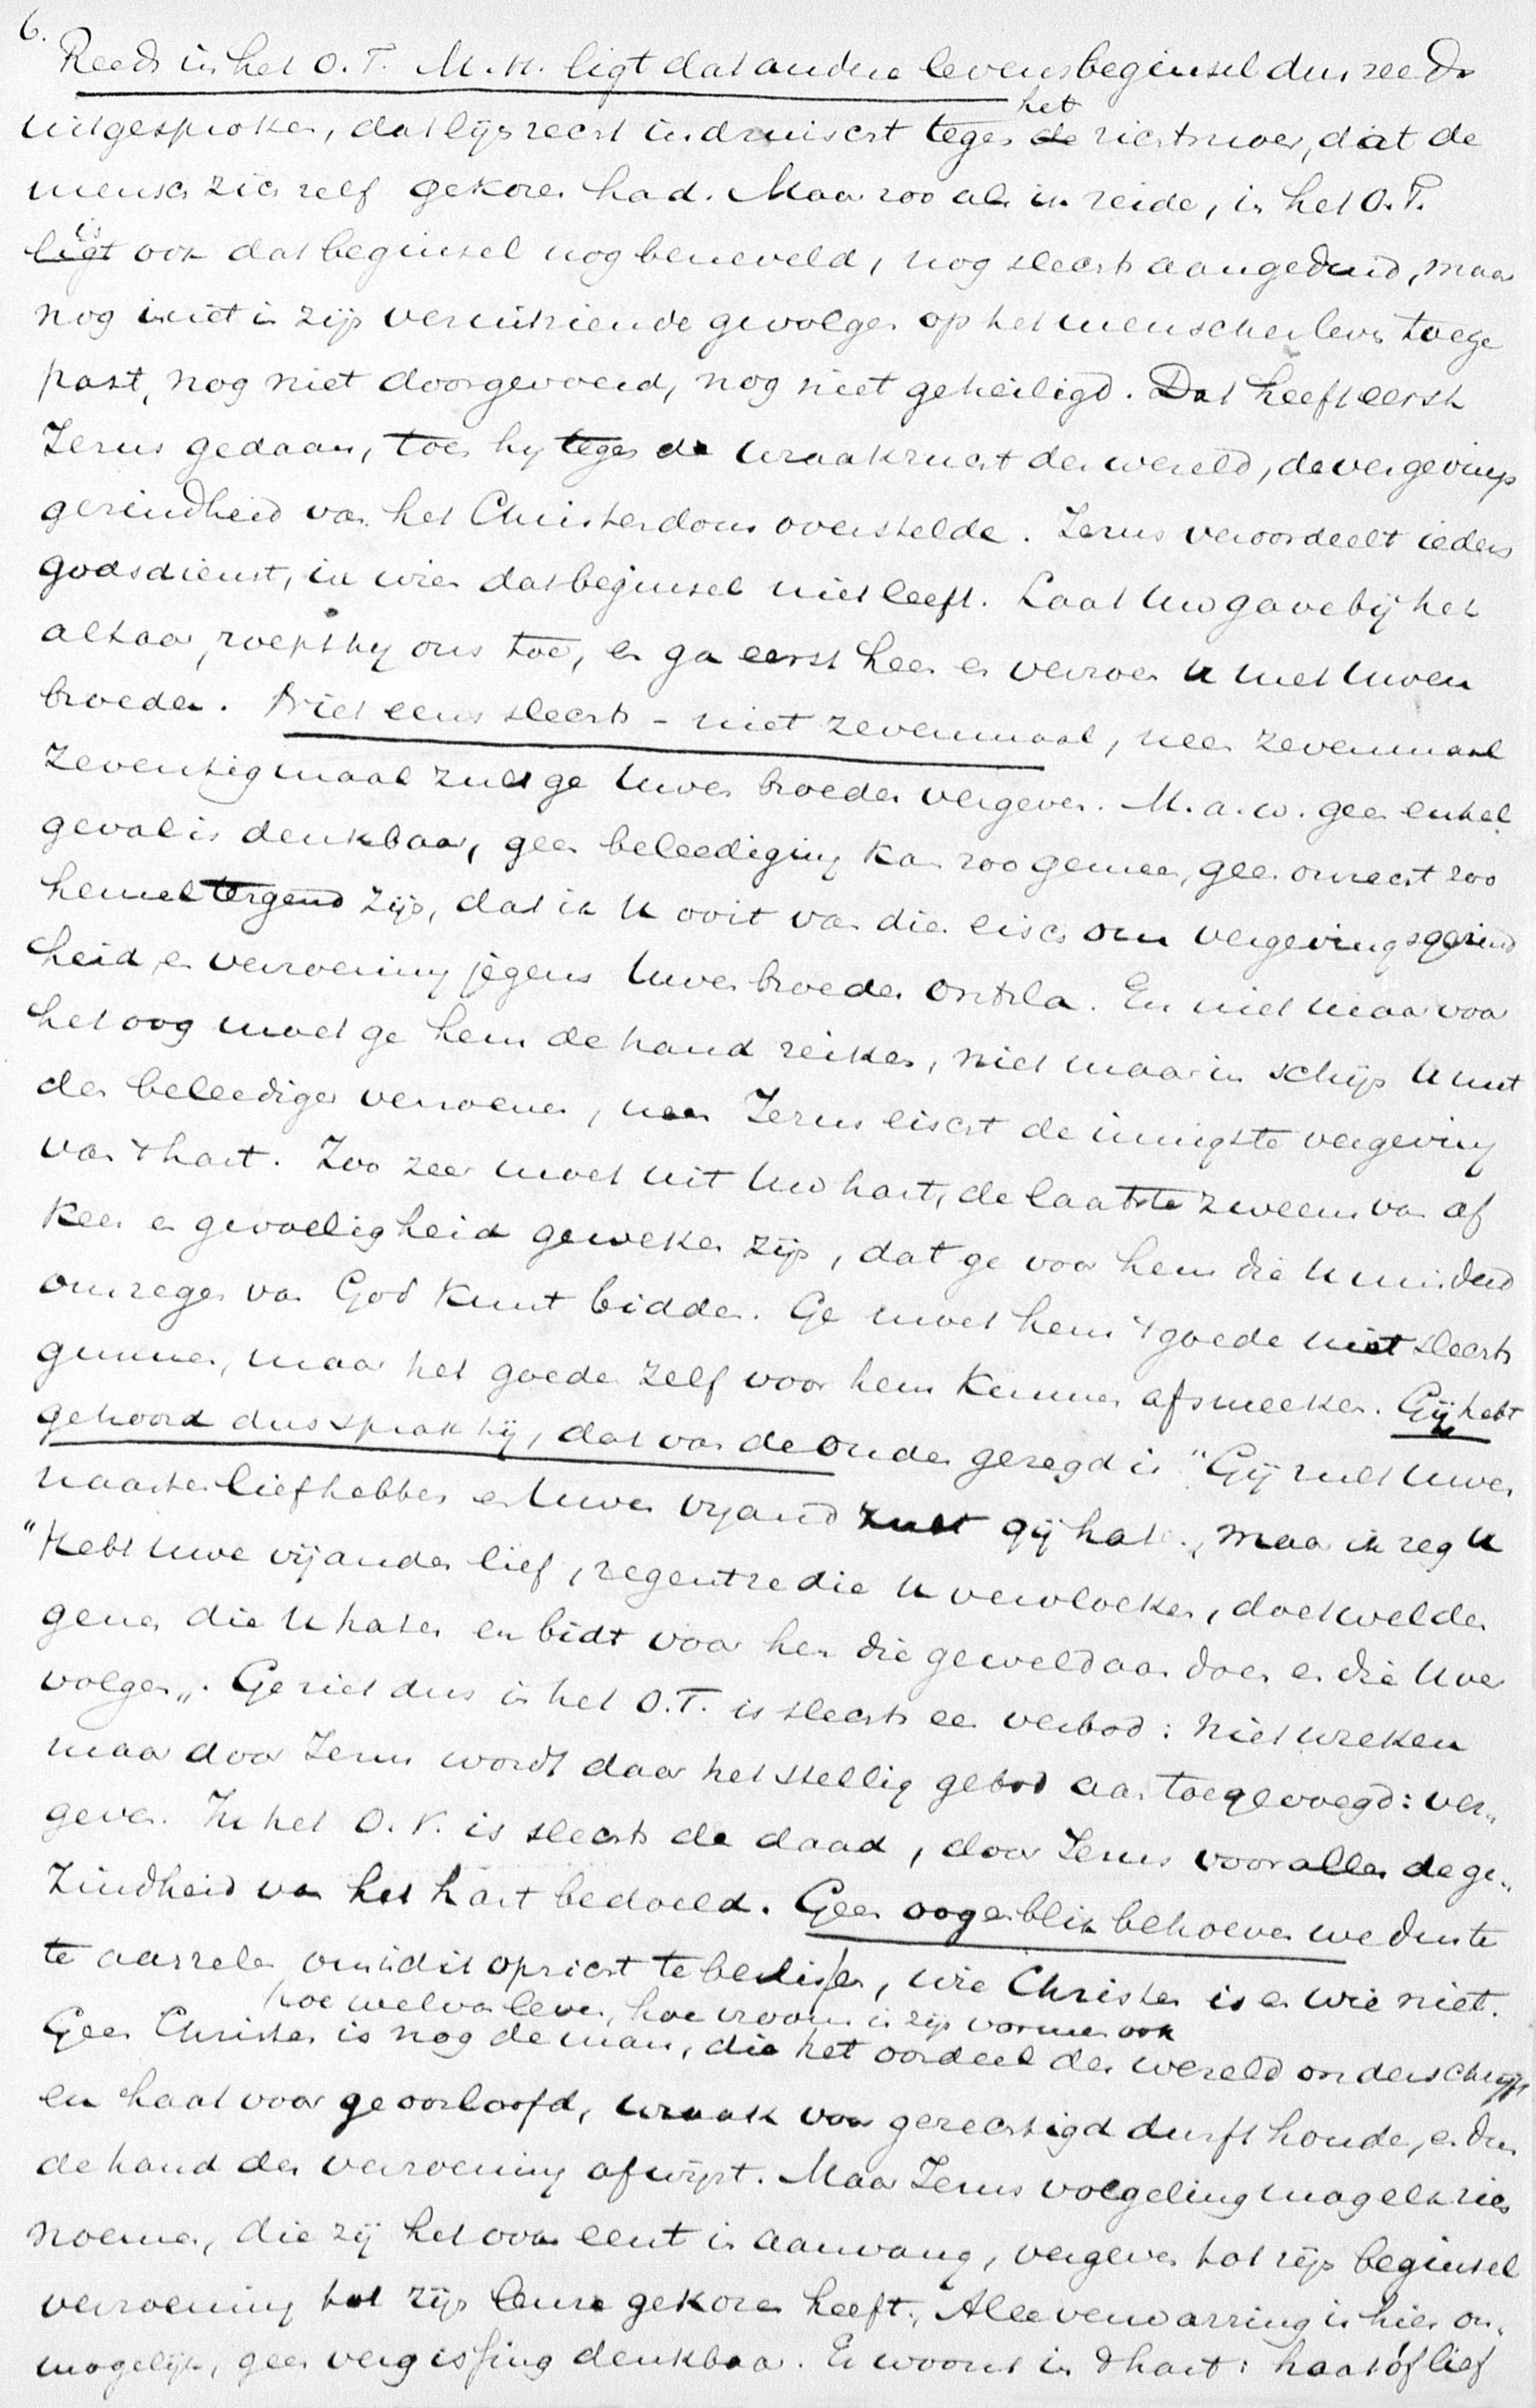 6.
Reeds in het O.T. M.H. ligt dat andere levensbeginsel dus reeds
uitgesproken, dat lijnrecht indruischt tegen de het richtsnoer, dat de
mensch zich zelf gekozen had. Maar zoo als ik zeide, in het O.T.
ligt is ook dat beginsel nog beneveld, nog slechts aangeduid, maar
nog niet in zijn gevolgen op het menschenleven toege
past, nog niet doorgevoerd, nog niet geheiligd. Dat heeft eerst
Jezus gedaan, toen hy tegen de wraakzucht der wereld, de vergevings
gezindheid van het Christendom overstelde. Jezus veroordeelt ieders
godsdienst, in wien dat beginsel niet leeft. Laat Uw gave bij het
altaar, roept hy ons toe, en ga eerst heen en verzoen U met Uwen
broeder. Niet eens slechts - niet zevenmaal, neen zevenmaal
zeventigmaal zult ge Uwen broeder vergeven. M.a.w. geen enkel
geval is denkbaar, geen beleediging kan zoo gemeen, geen onrecht zoo
hemeltergend zijn, dat ik U ooit van dien eisch om vergevingsgezind
heid en verzoening jegens Uwen broeder ontsla. En niet maar voor
het oog moet ge hem de hand reiken, niet maar in schijn U met
den beleediger verzoenen, neen Jezus eischt de innigste vergeving
van 't hart. Zoo zeer moet uit Uw hart, de laatste zweem van af
keer en gevoeligheid geweken zijn, dat ge voor hem die U misdeed
om zegen van God kunt bidden. Ge moet hem 't goede niet slechts
gunnen, maar het goede zelf voor hem kunnen afsmeeken. Gij hebt
gehoord dus sprak hij, dat van de ouden gezegd is "Gij zult Uwen
naasten liefhebben en Uwen vyand zult gij haten, maar ik zeg U
"Hebt Uwe vijanden lief, zegent ze die U vervloeken, doet wel den
genen die U haten en bidt voor hen die geweld aan doen en die U ver
volgen„. Ge ziet dus in het O.T. is slechts een verbod: niet wreken
maar door Jezus wordt daar het stellig gebod aan toegevoegd: ver„
geven. In het O.V. is slechts de daad, door Jezus vooral de ge„
zindheid van het hart bedoeld. Geen oogenblik behoeven we dus te
te aarzelen om in dit opzicht te beslissen, wie Christen is en wie niet.
hoe wel van leven, hoe vroom in zijn vormen ook
Geen Christen is nog de man, die het oordeel der wereld onderschrijft
en haat voor geoorloofd, wraak voor gerechtigd durft houden, en dus
de hand der verzoening afwijst. Maar Jezus volgeling mag elk zich
noemen, die zij het ook eerst in aanvang, vergeven tot zijn beginsel
verzoening tot zijn leuze gekozen heeft. Alle verwarring is hier on„
mogelijk, geen vergissing denkbaar. Er woont in 't hart: haat óf lief